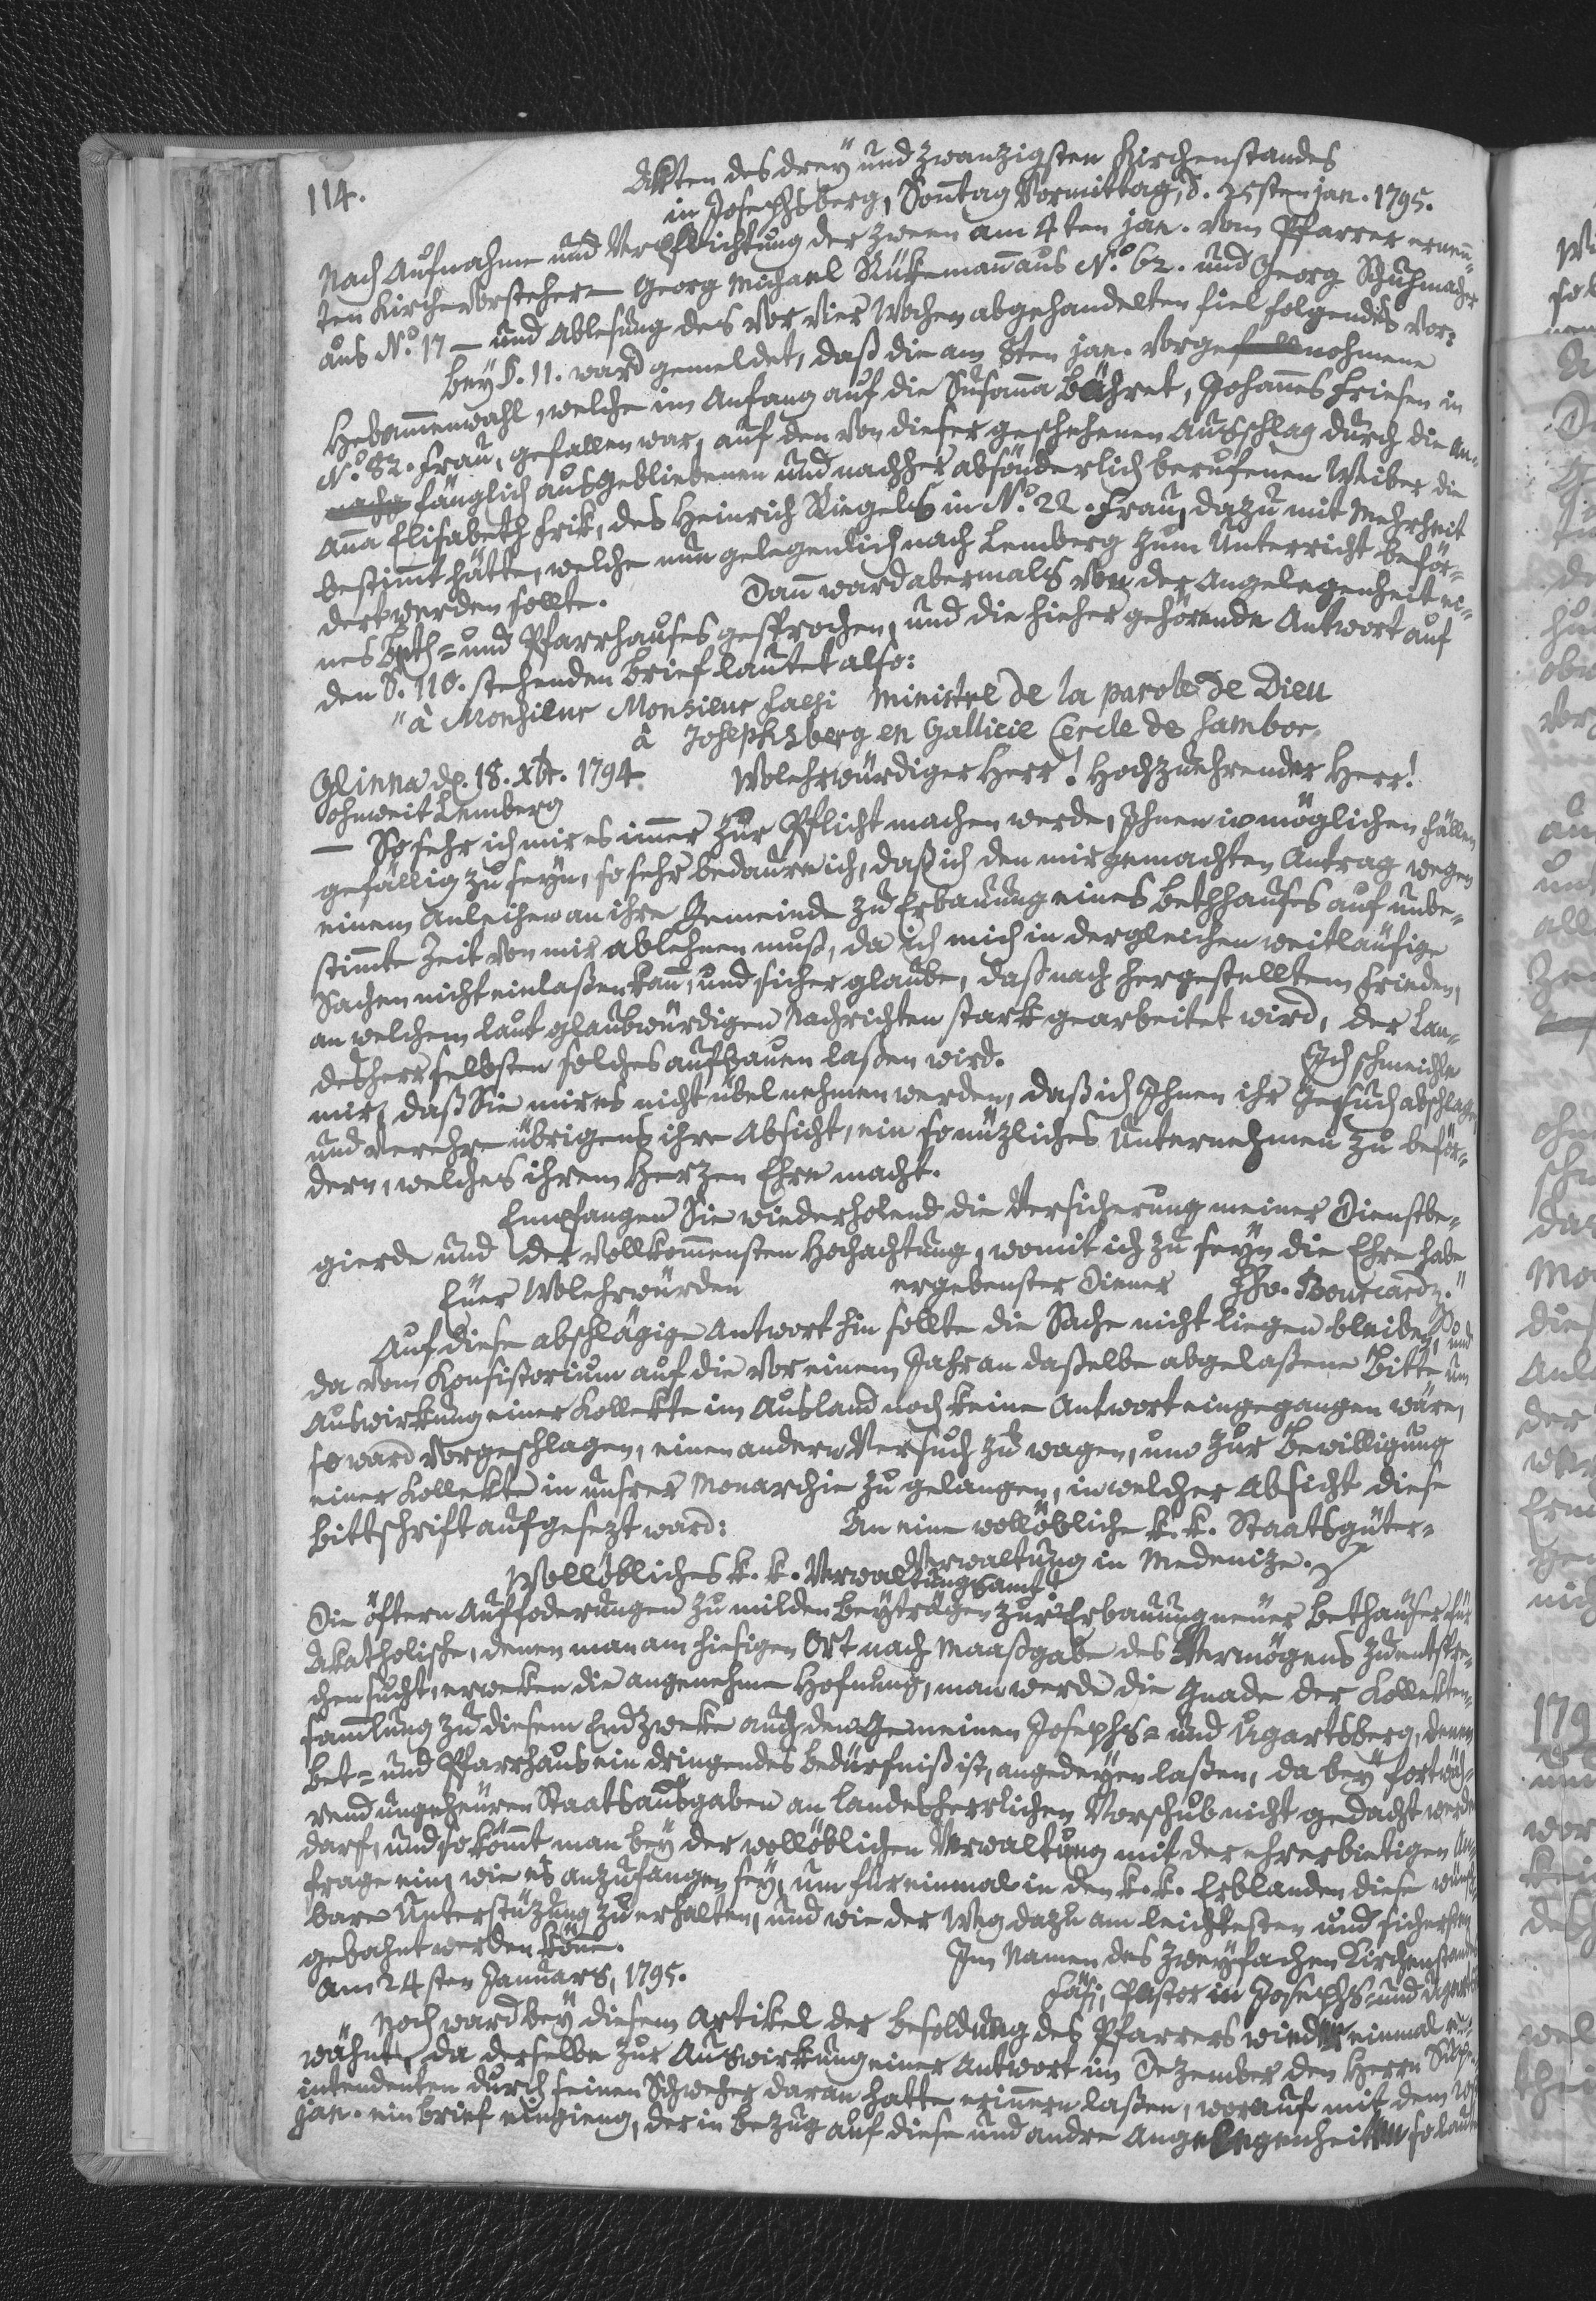 114.
Akten des drey und zwanzigsten Kirchenstandes
in Josephsberg, Sontag Vormittag, d. 25sten jan. 1795.
Nach Aufnahme und Verpflichtung der zween am 4ten jan. vom Pfarrer ernenn-
ten Kirchenvorsteher – Georg Michael Rükeman aus No. 62. und Georg Schuhmacher
aus No. 17 – und Ablesung des vor vier Wochen abgehandelten fiel folgendes vor:
bey S. 11. ward gemeldet, daß die am 8ten jan. vorgefallnohmene
Hebammenwahl, welche im Anfang auf die Susanna Bähret, Johannes Friesen in
No. 82. Frau, gefallen war, auf den von dieser geschehenen Ausschlag durch die an-
fänglich ausgebliebenen und nachher absönderlich berufenen Weiber die
Anna Elisabeth Erik, des Heinrich Riegels in No. 22. Frau, dazu mit Mehrheit
bestimmt hätte, welche nun gelegenlich nach Lemberg zum Unterricht beför-
dert werden sollte. Dann ward abermals von der Angelegenheit ei-
nes Beth- und Pfarrhauses gesprochen, und die hieher gehörende Antwort auf
den S. 110. stehenden Brief lautet also:
"à Monsieur Monsieur Faesi Ministre de la parole de Dieu
à Josephsberg en Gallicie Cercle de Sambor.
Glinna d. 18. Xbr. 1794. Wolehrwürdiger Herr! Hochzuehrender Herr!
ohnweit Lemberg
– So sehr ich mir es immer zur Pflicht machen werde, Ihnen in möglichen Fällen
gefällig zu seyn, so sehr bedaure ich, daß ich den mir gemachten Antrag wegen
einem Anleihen an ihre Gemeinde zu Erbauung eines Bethhauses auf unbe-
stimmte Zeit von mir ablehnen muß, da ich mich in dergleichen weitläufige
Sachen nicht einlaßen kann, und sicher glaube, daß nach hergestelltem Frieden,
an welchem laut glaubwürdigen Nachrichten stark gearbeitet wird, der Lan-
desherr selbsten solches aufbauen laßen wird. Ich schmeichle
mir, daß Sie mir es nicht übel nehmen werden, daß ich Ihnen ihr Gesuch abschlage,
und verehre übrigens ihre Absicht, ein so nüzliches Unternehmen zu beför-
dern, welches ihrem Herzen Ehre macht.
Empfangen Sie wiederholend die Versicherung meiner Dienstbe-
gierde und der vollkommensten Hochachtung, womit ich zu seyn die Ehre habe
Euer Wolehrwürden ergebenster Diener
Auf diese abschlägige Antwort hin sollte die Sache nicht liegen bleiben, und
da vom Konsistorium auf die vor einem Jahr an daßelbe abgelaßene Bitte um
Auswirkung einer Kollekte im Ausland noch keine Antwort eingegangen wäre,
so ward vorgeschlagen, einen andern Versuch zu wagen, um zur Bewilligung
einer Kollekte in unsrer Monarchie zu gelangen, in welcher Absicht diese
Bittschrift aufgesezt ward: An eine wollöbliche k. k. Staatsgüter-
Verwaltung in Medenize.
Wollöbliches k. k. Verwaltungsamt!
Die öftern Auffoderungen zu milden Beyträgen zur Erbauung neuer Bethäuser für
Akatholische, denen man am hiesigen Ort nach Maaßgabe des Vermögens zu entspre-
chen sucht, erweken die angenehme Hofnung, man werde die Gnade der Kollekten-
sammlung zu diesem Endzweke auch den Gemeinen Josephs- und Ugartsberg, denen
Bet- und Pfarrhaus ein dringendes Bedürfniß ist, angedeyen laßen, da bey fortwäh-
rend ungeheuren Staatsausgaben an landesherrlichen Vorschub nicht gedacht werden
darf, und so kömmt man bey der wollöblichen Verwaltung mit der ehrerbietigen An-
frage ein, wie es anzufangen sey, um für einmal in den k. k. Erblanden diese wünsch-
bare Unterstüzung zu erhalten, und wie der Weg dazu am leichtesten und sichersten
gebahnt werden könne. Im Namen des zweyfachen Kirchenstandes
Am 24sten Januars, 1795. Fäsi, Pastor in Josephs- und Ugart
Noch ward bey diesem Artikel der Besoldung des Pfarrers wieder einmal er-
wähnt, da derselbe zur Auswirkung einer Antwort im Dezember den Herrn Super-
intendenten durch seinen Schweher daran hatte erinnern laßen, worauf mit dem
jan. ein Brief eingieng, der in bezug auf diese und andre Angelegenheiten so laute